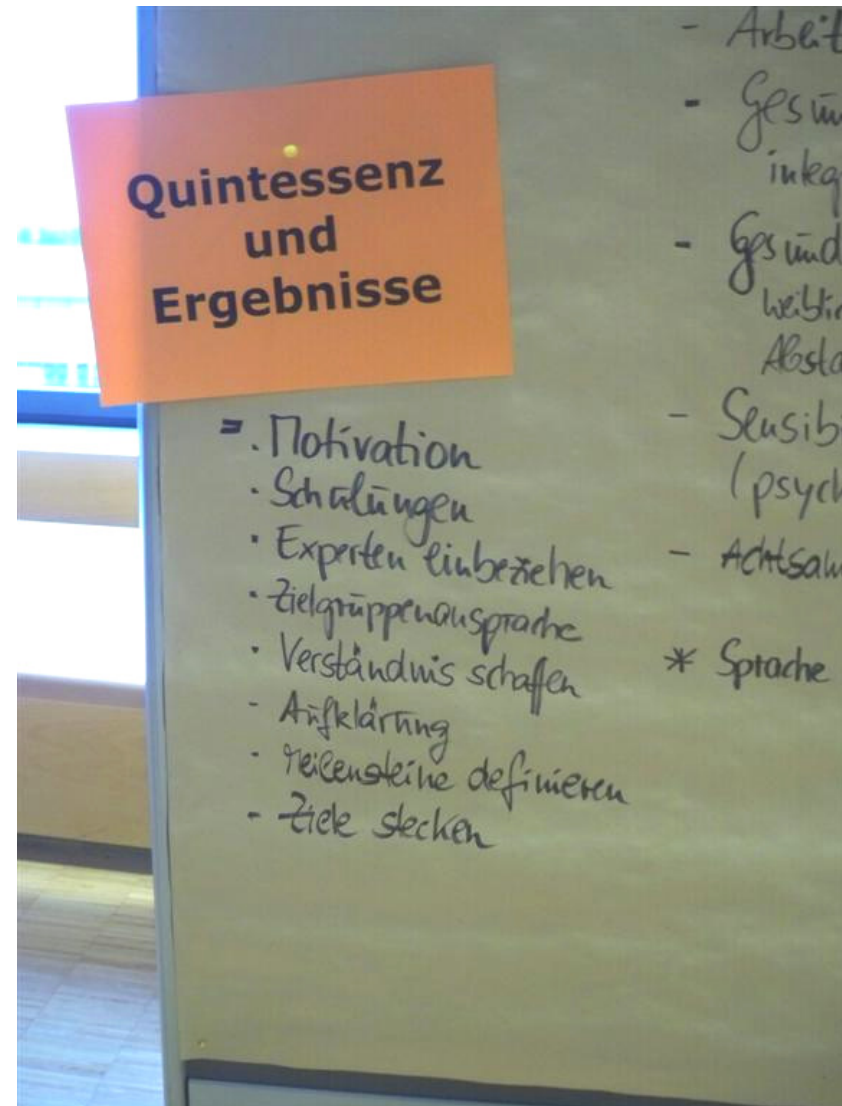 Quintessenz
und
Ergebnisse
= . Motivation
· Schulungen
· Experten einbeziehen
· Zielgruppenansprache
· Verständnis schaffen
- Aufklärung
- Meilensteine definieren
- Ziele stecken
- Arbeit
- Gesun
integ
- Gesund
weiblic
Absta
- Sensib
(psych
- Achtsam
* Sprache